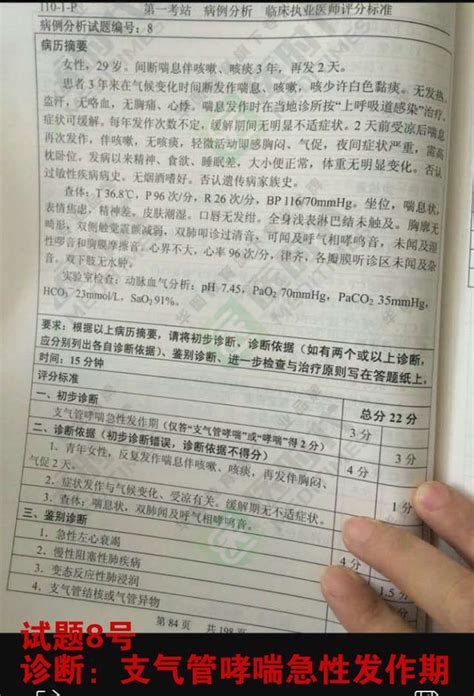 110-1-P 第一考站 病例分析 临床执业医师评分标准
病例分析试题编号：8
病历摘要
女性，29岁。间断喘息伴咳嗽、咳痰3年，再发2天。
患者3年来在气候变化时间断发作喘息、咳嗽，咳少许白色黏痰。无发热、
盗汗，无咯血，无胸痛、心悸。喘息发作时在当地诊所按“上呼吸道感染”治疗，
症状可缓解。每年发作次数不定，缓解期间无明显不适症状。2天前受凉后喘息
再次发作，伴咳嗽，无咳痰，轻微活动即感胸闷、气促，夜间症状严重，需高
枕卧位，发病以来精神、食欲、睡眠差，大小便正常，体重无明显变化。否认
过敏性疾病病史。无烟酒嗜好。否认遗传病家族史。
查体：T 36.8℃，P 96次/分，R 26次/分，BP 116/70mmHg。坐位，喘息状，
表情焦虑，精神差，皮肤潮湿。口唇无发绀。全身浅表淋巴结未触及。胸廓无
畸形，双侧触觉震颤减弱，双肺叩诊过清音，可闻及呼气相哮鸣音，未闻及湿
性啰音和胸膜摩擦音。心界不大，心率96次/分，律齐，各瓣膜听诊区未闻及杂
音，双下肢无水肿。
实验室检查：动脉血气分析：pH 7.45，PaO₂ 70mmHg，PaCO₂ 35mmHg，
HCO₃⁻ 23mmol/L，SaO₂ 91%。
要求：根据以上病历摘要，请将初步诊断、诊断依据（如有两个或以上诊断，
应分别列出各自诊断依据）、鉴别诊断、进一步检查与治疗原则写在答题纸上。
时间：15分钟
评分标准 总分22分
一、初步诊断
支气管哮喘急性发作期（仅答“支气管哮喘”或“哮喘”得2分） 3分
二、诊断依据（初步诊断错误，诊断依据不得分） 3分
1．青年女性，反复发作喘息伴咳嗽、咳痰，再发伴胸闷、
气促2天。 4分
2．症状发作与气候变化、受凉有关。缓解期无不适症状。 1分
3．查体：喘息状，双肺闻及呼气相哮鸣音。
三、鉴别诊断
1．急性左心衰竭
2．慢性阻塞性肺疾病 4分
3．变态反应性肺浸润 1.5分
4．支气管结核或气管异物
第84页 共198页
试题8号
诊断：支气管哮喘急性发作期